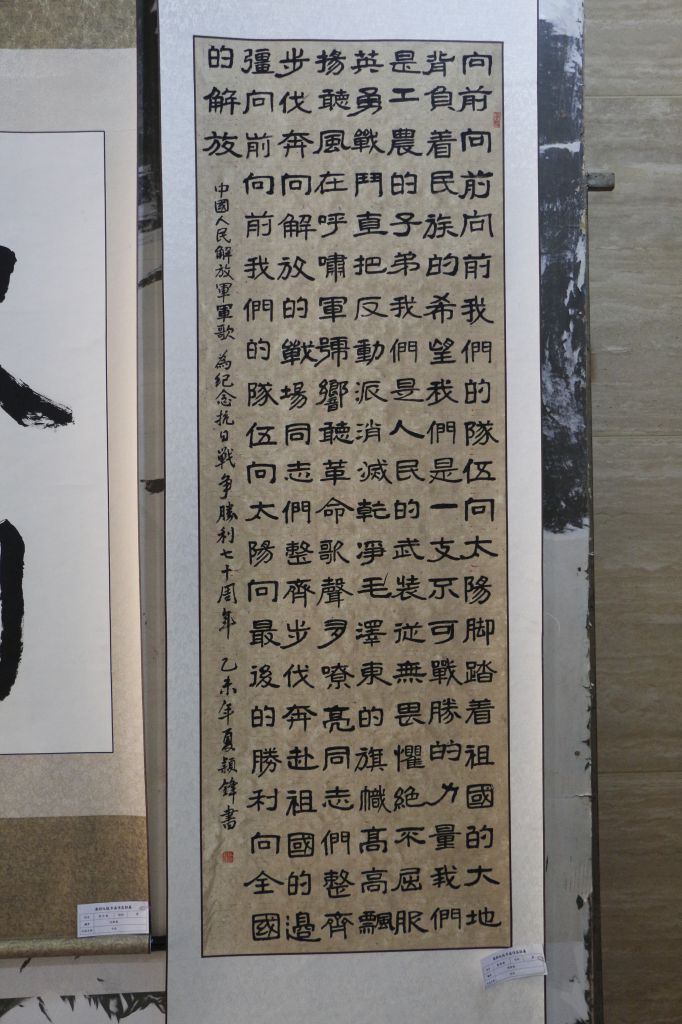 向前向前向前我們的隊伍向太陽脚踏着祖國的大地
背負着民族的希望我們是一支不可戰勝的力量我們
是工農的子弟我們是人民的武裝從無畏懼絕不屈服
英勇戰鬥直把反動派消滅乾凈毛澤東的旗幟髙高飄
揚聽風在呼嘯軍號響聽革命歌聲多嘹亮同志們整齊
步伐奔向解放的戰場同志們整齊步伐奔赴祖國的邊
疆向前向前我們的隊伍向太陽向最後的勝利向全國
的解放
中國人民解放軍軍歌 為紀念抗日戰争勝利七十周年 乙未年夏穎鋒書